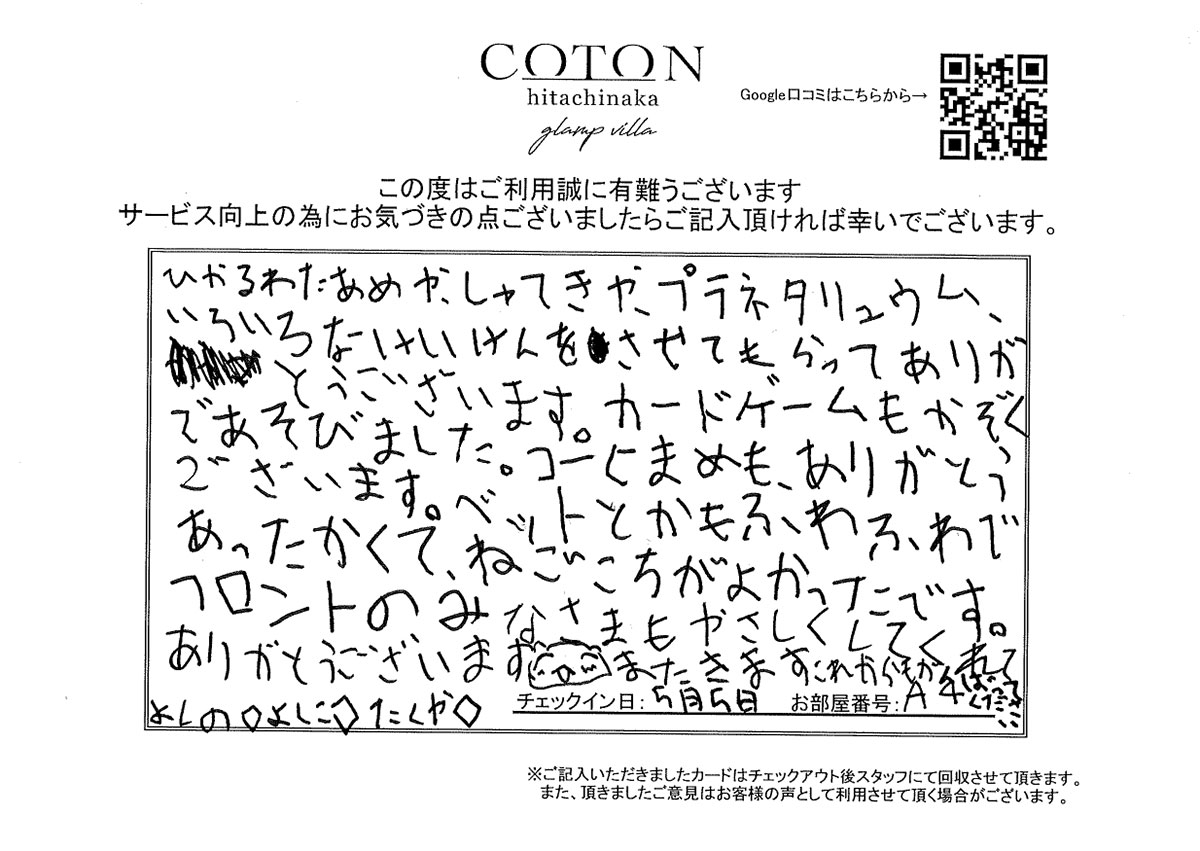 COTON
hitachinaka
glamp villa
Google口コミはこちらから→
この度はご利用誠に有難うございます
サービス向上の為にお気づきの点ございましたらご記入頂ければ幸いでございます。
ひかるわたあめや、しゃてきや、プラネタリュウム、
いろいろなけいけんをさせてもらってありが
とうございます。カードゲームもかぞく
であそびました。コーヒまめも、ありがとう
ございます。ベットとかもふわふわで
あったかくて、ねごこちがよかったです。
フロントのみなさまもやさしくしてくれて
ありがとうございます またきます これからもがんばってください
チェックイン日：5月5日 お部屋番号：A4
よしの◇よしこ◇たくや◇
※ご記入いただきましたカードはチェックアウト後スタッフにて回収させて頂きます。
また、頂きましたご意見はお客様の声として利用させて頂く場合がございます。